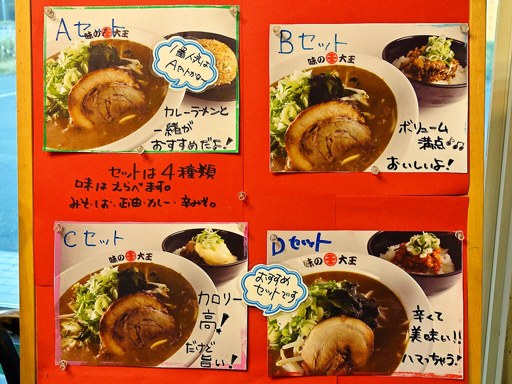 Aセット
味の大王
1番人気は
Aセットかな~
カレーラーメンと
一緒が
おすすめだよ!
Bセット
味の大王
ボリューム
満点♪♪
おいしいよ!
セットは4種類
味はえらべます。
みそ・しお・正油・カレー・辛みそ。
Cセット
味の大王
カロリー
高!
だけど
旨い!
Dセット
味の大王
おすすめ
セットです
辛くて
美味い!!
ハマっちゃう!